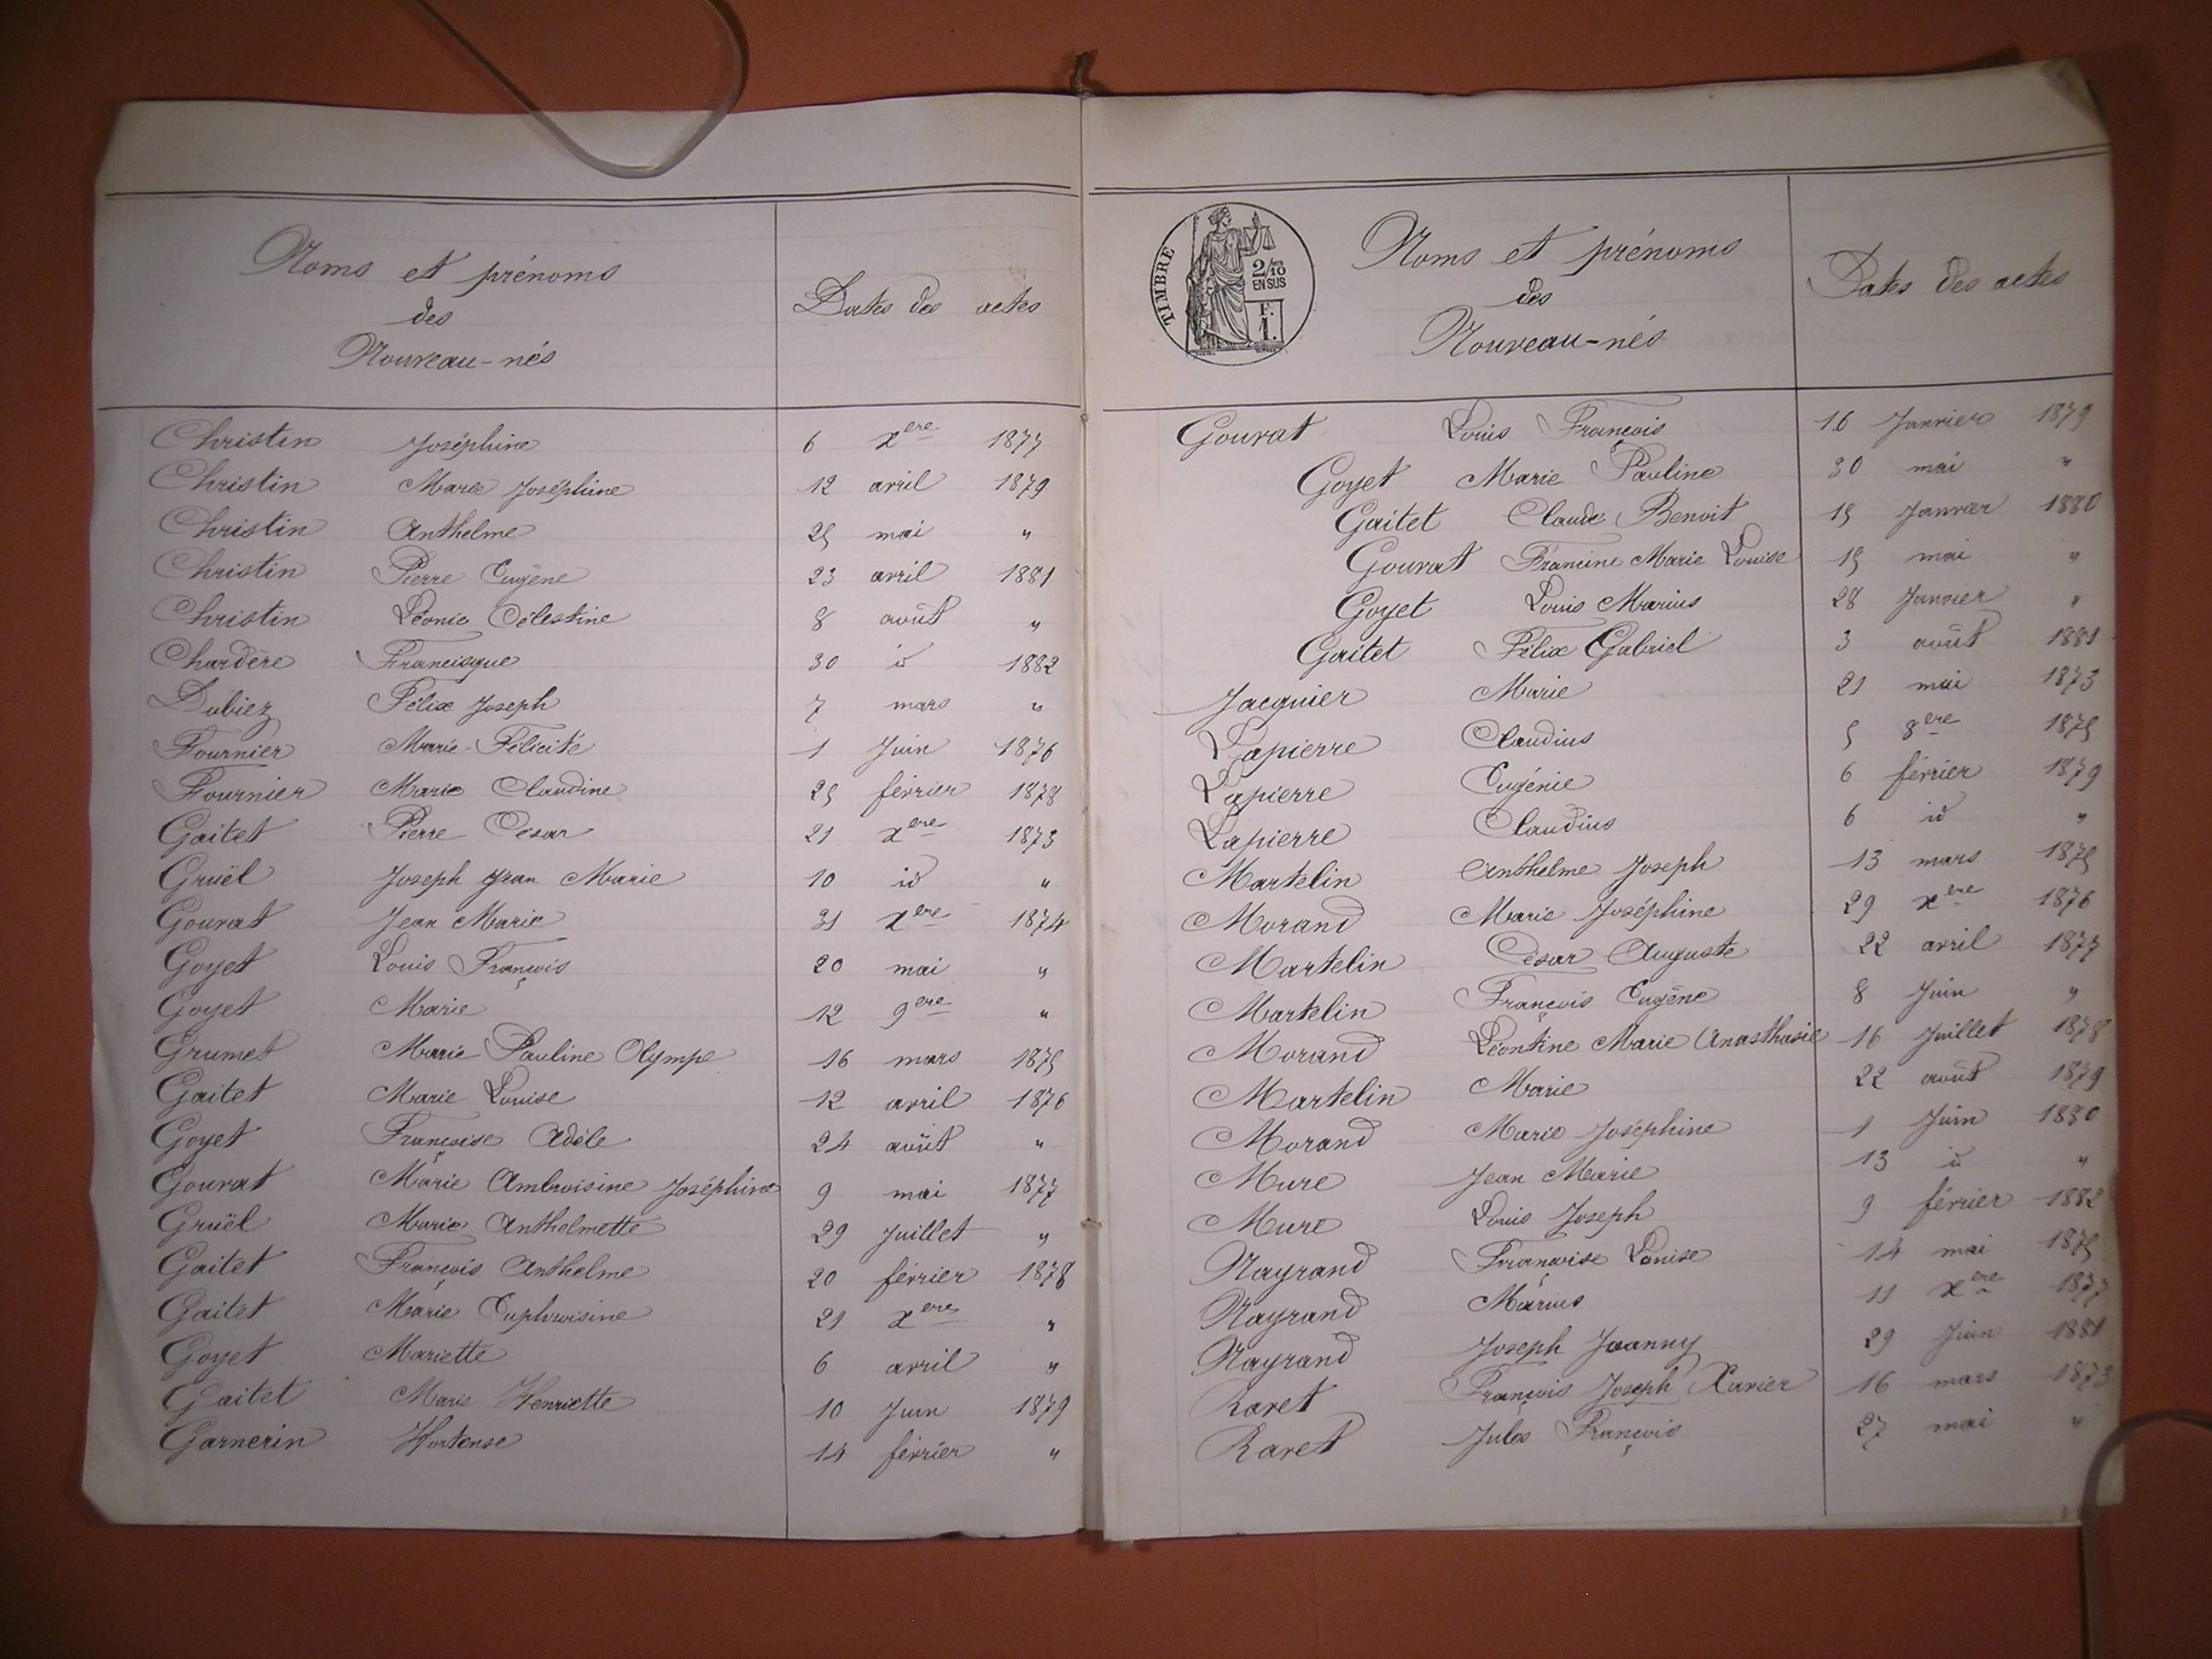 Noms et prénoms
des
Nouveau-nés
Dates des actes
Christin Joséphine 6 xere 1877
Christin Marie Joséphine 12 avril 1879
Christin Anthelme 25 mai "
Christin Pierre Eugène 23 avril 1881
Christin Léonie Célestine 8 août "
Chardère Francisque 30 id 1882
Dubiez Félix Joseph 7 mars "
Fournier Marie Félicité 1 Juin 1876
Fournier Marie Claudine 25 février 1878
Gaitet Pierre César 21 xere 1873
Gruël Joseph Jean Marie 10 id "
Gourat Jean Marie 31 xere 1874
Goyet Louis François 20 mai "
Goyet Marie 12 9ere "
Grumet Marie Pauline Olympe 16 mars 1875
Gaitet Marie Louise 12 avril 1876
Goyet Françoise Adèle 24 août "
Gourat Marie Ambroisine Joséphine 9 mai 1877
Gruël Marie Anthelmette 29 Juillet "
Gaitet François Anthelme 20 février 1878
Gaitet Marie Euphroisine 21 xere "
Goyet Mariette 6 avril "
Gaitet Marie Henriette 10 Juin 1879
Garnerin Hortense 14 février "
TIMBRE
2/10
EN SUS
F.
1.
Noms et prénoms
des
Nouveau-nés
Dates des actes
Gourat Louis François 16 Janvier 1879
Goyet Marie Pauline 30 mai "
Gaitet Claude Benoit 15 Janvier 1880
Gourat Francine Marie Louise 15 mai "
Goyet Louis Marius 28 Janvier "
Gaitet Félix Gabriel 3 août 1881
Jacquier Marie 21 mai 1873
Lapierre Claudius 5 8ere 1875
Lapierre Eugénie 6 février 1879
Lapierre Claudius 6 id "
Martelin Anthelme Joseph 13 mars 1875
Morand Marie Joséphine 29 xere 1876
Martelin César Auguste 22 avril 1877
Martelin François Eugène 8 Juin "
Morand Léontine Marie Anasthasie 16 Juillet 1878
Martelin Marie 22 août 1879
Morand Marie Joséphine 1 Juin 1880
Mure Jean Marie 13 id "
Mure Louis Joseph 9 février 1882
Nayrand Françoise Louise 14 mai 1875
Nayrand Marius 11 xere 1877
Nayrand Joseph Joanny 29 Juin 1881
Ravet François Joseph Xavier 16 mars 1873
Ravet Jules François 27 mai "